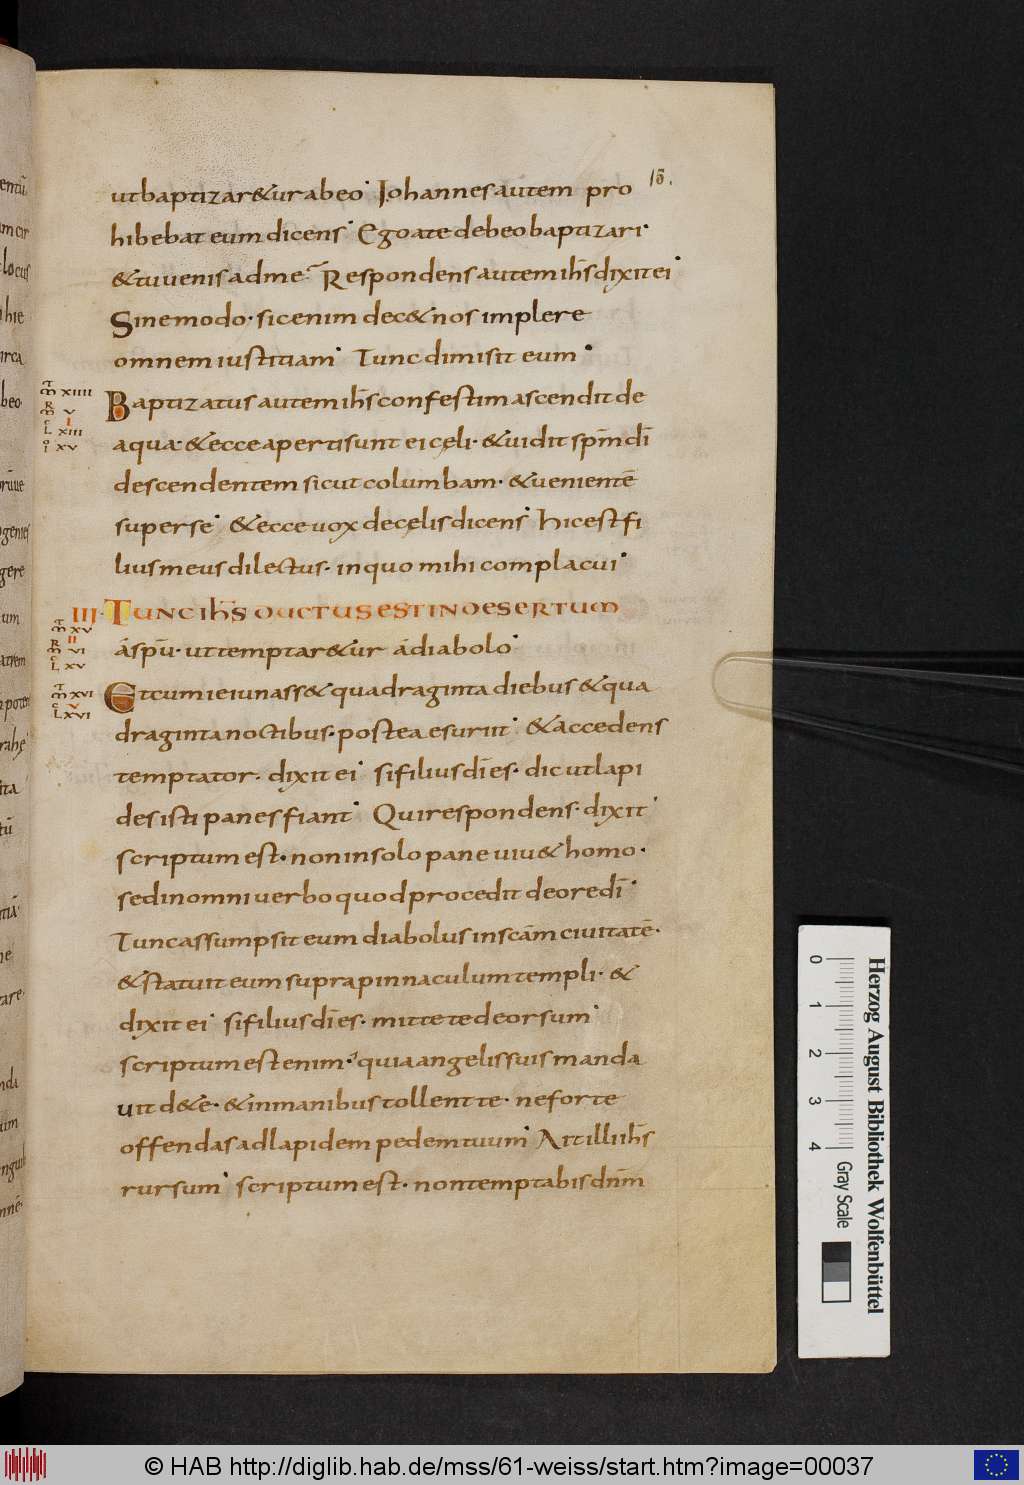 15.
utbaptizar&ur abeo· Iohannes autem pro
hibebat eum dicens· Ego ate debeo baptizari·
& tu uenis ad me? Respondens autem ih̅s dixit ei·
Sine modo· sic enim dec& nos implere
omnem iustitiam· Tunc dimisit eum·
Baptizatus autem ih̅s confestim ascendit de
aqua· & ecce aperti sunt ei cęli· & uidit sp̅m di̅
descendentem sicut columbam· & uenientē
super se· & ecce uox de cęlis dicens· hic est fi
lius meus dilectus· in quo mihi complacui·
III· Tunc ih̅s ductus est in desertum
áspū· ut temptar&ur ádiabolo·
Et cum ieiunass& quadraginta diebus & qua
draginta noctibus· postea esuriit· & accedens
temptator· dixit ei· si filius di̅ es· dic ut lapi
des isti panes fiant· Qui respondens· dixit·
scriptum est· non in solo pane uiu& homo·
sed in omni uerbo quod procedit de ore di̅·
Tunc assumpsit eum diabolus in scām ciuitatē·
& statuit eum supra pinnaculum templi· &
dixit ei· si filius di̅ es· mitte te deorsum·
scriptum est enim· quia angelis suis manda
uit d&e· & in manibus tollent te· ne forte
offendas ad lapidem pedem tuum· Ait illi ih̅s
rursum· scriptum est· non temptabis dn̅m
XIIII
V
I
XIII
XV
XV
II
VI
XV
XVI
V
XVI
Herzog August Bibliothek Wolfenbüttel
0 1 2 3 4 Gray Scale
© HAB http://diglib.hab.de/mss/61-weiss/start.htm?image=00037